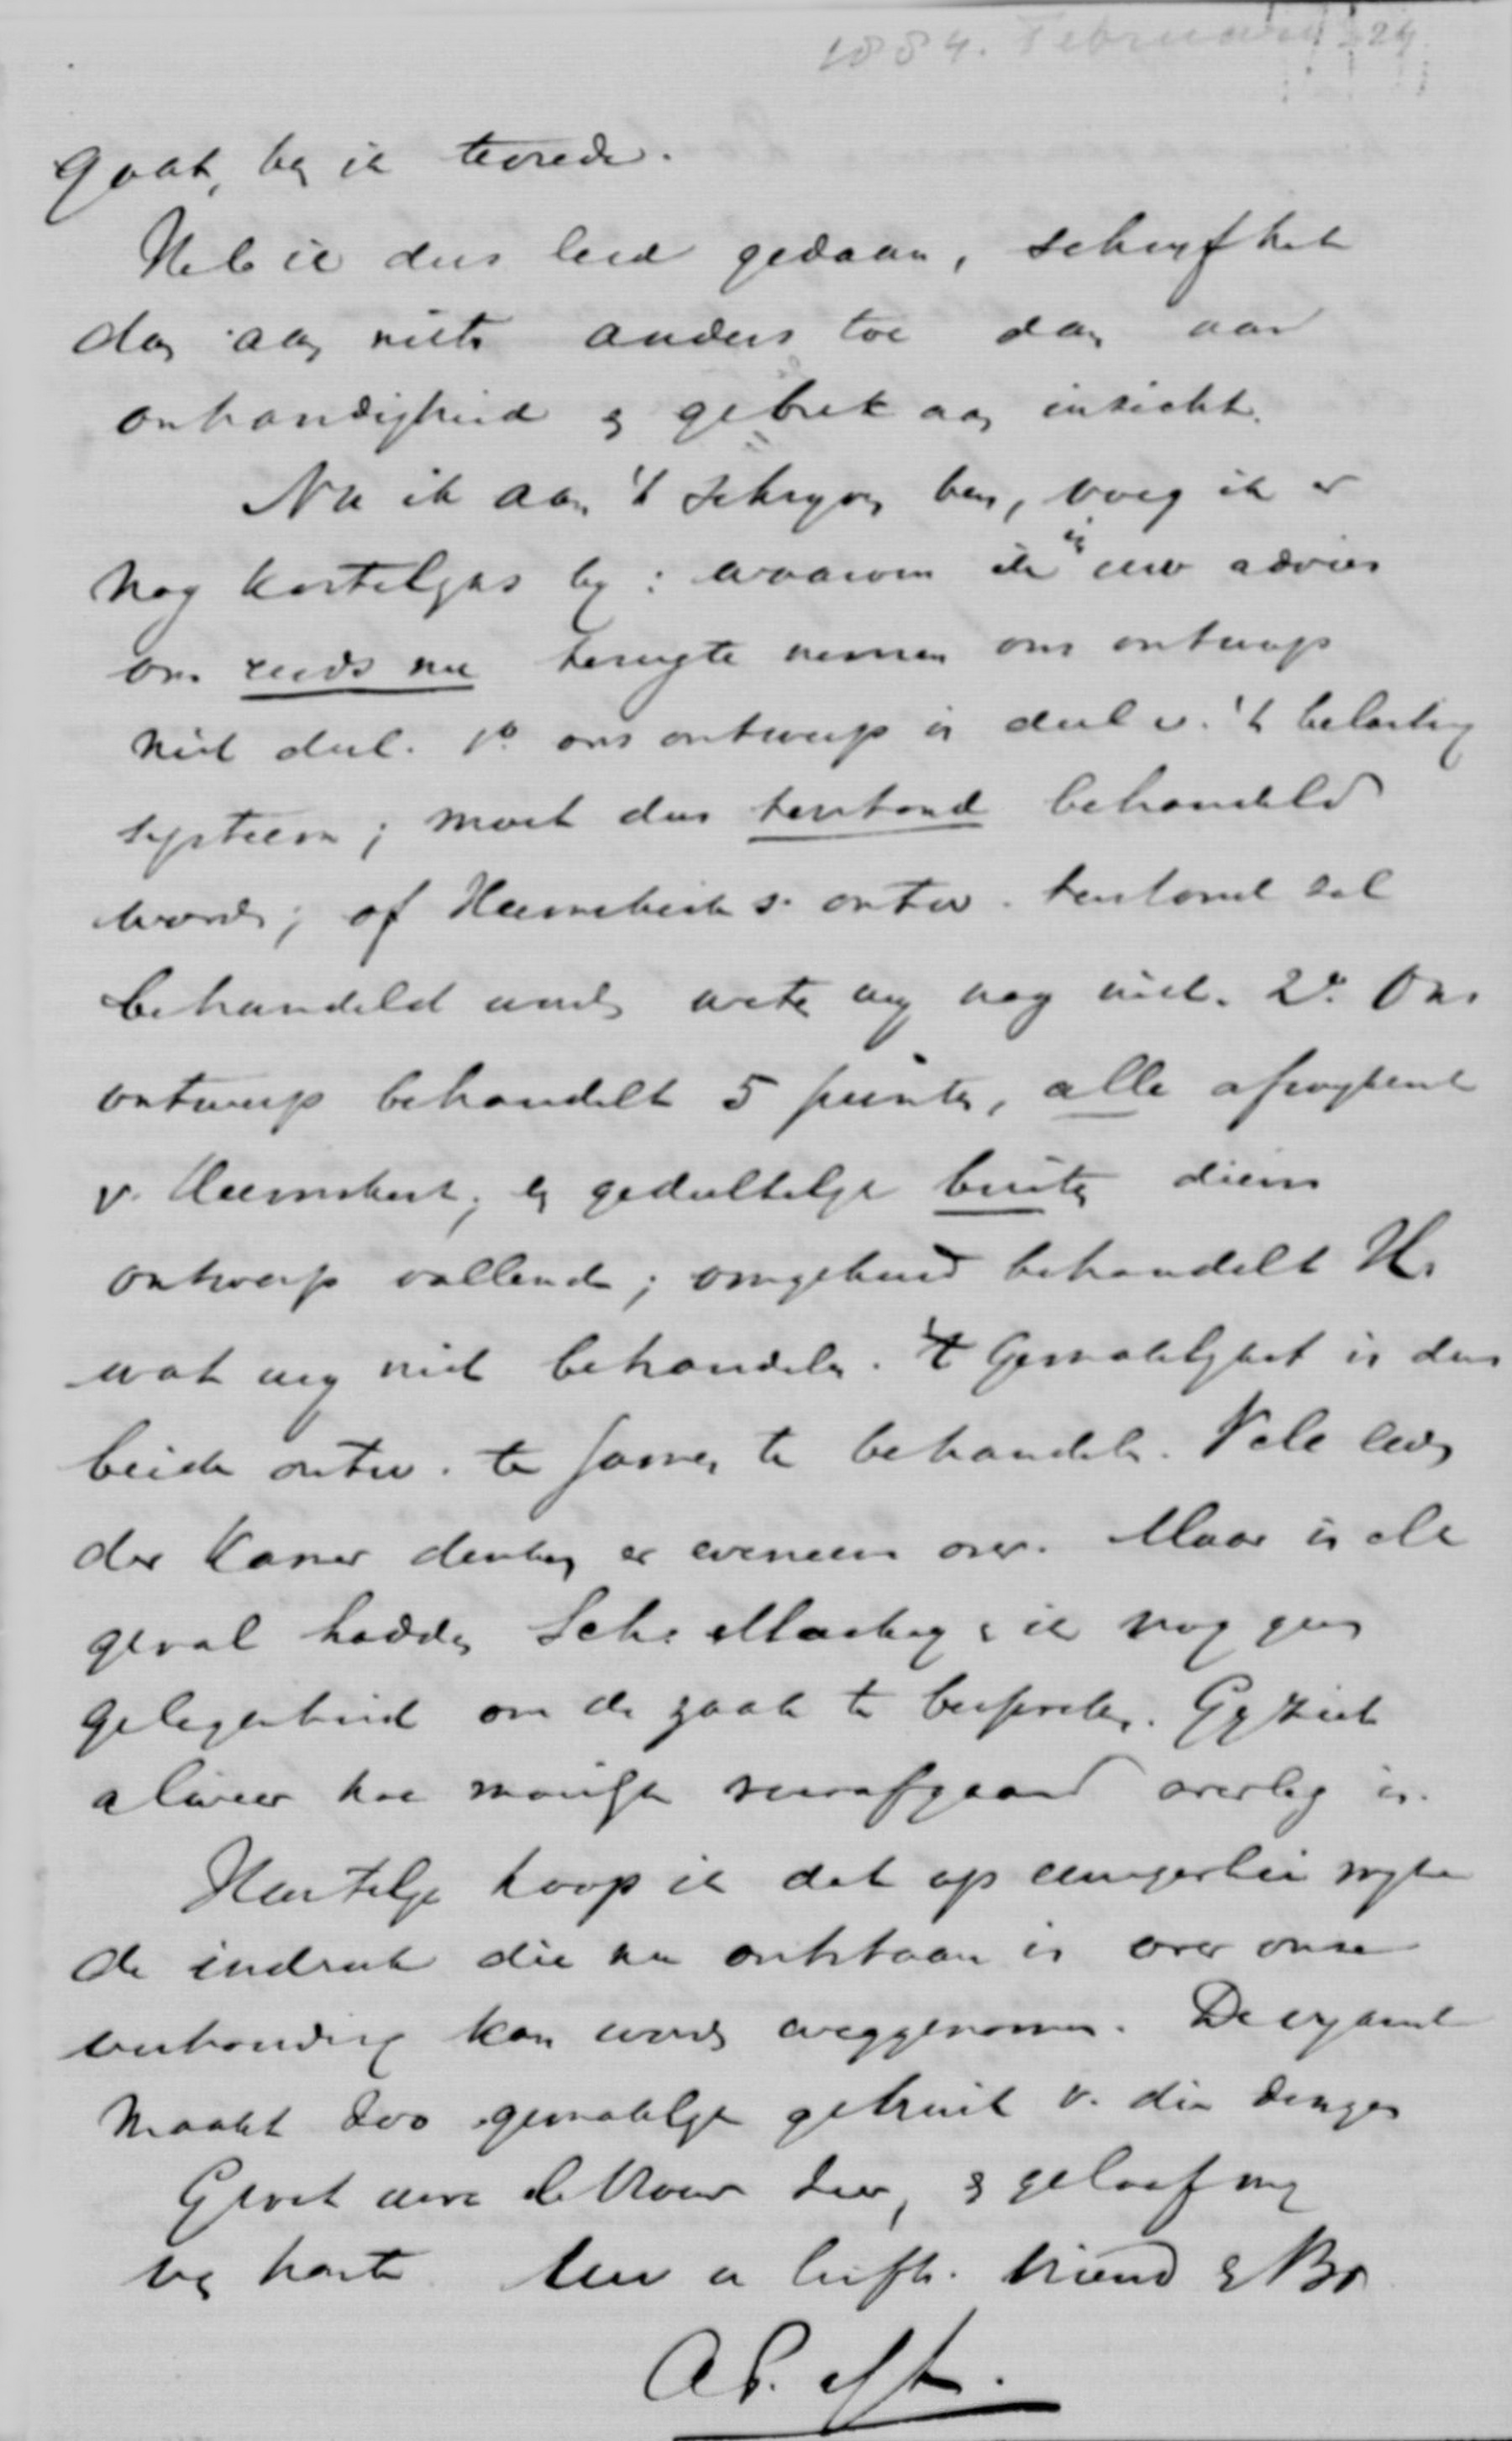 1884. Februari 29
gaat, ben ik tevrede.
Heb ik dus leed gedaan, schrijf het
dan aan niets anders toe dan aan
onhandigheid en gebrek aan inzicht.
Nu ik aan 't schrijven ben, voeg ik er
nog kortelijks bij: waarom ik in uw advies
om reeds nu terugte nemen ons ontwerp
niet deel. 1o ons ontwerp is deel v. 't belasting
systeem; moet dus terstond behandeld
worden; of Heemskerk's ontw. terstond zal
behandeld worden weten wij nog niet. 2o Ons
ontwerp behandelt 5 punten, alle afwijkend
v. Heemskerk; en gedeeltelijk buiten diens
ontwerp vallende; omgekeerd behandelt H.
wat wij niet behandelen. 't Gemakkelijkst is dus
beide ontw. te samen te behandelen. Vele leden
der Kamer denken er eveneens over. Maar in elk
geval hadden Sch. Mackay en ik nog geen
gelegenheid om de zaak te bespreken. Gij ziet
alweer hoe moeilijk voorafgaand overleg is.
Hartelijk hoop ik dat op eenigerlei wijze
de indruk die nu ontstaan is over onze
verhouding kan worden weggenomen. De vijand
maakt zoo gemakkelijk gebruik v. die dingen
Groet uwe Vrouw zeer, en geloof mij
van harte Uw a liefh. Vriend en Br